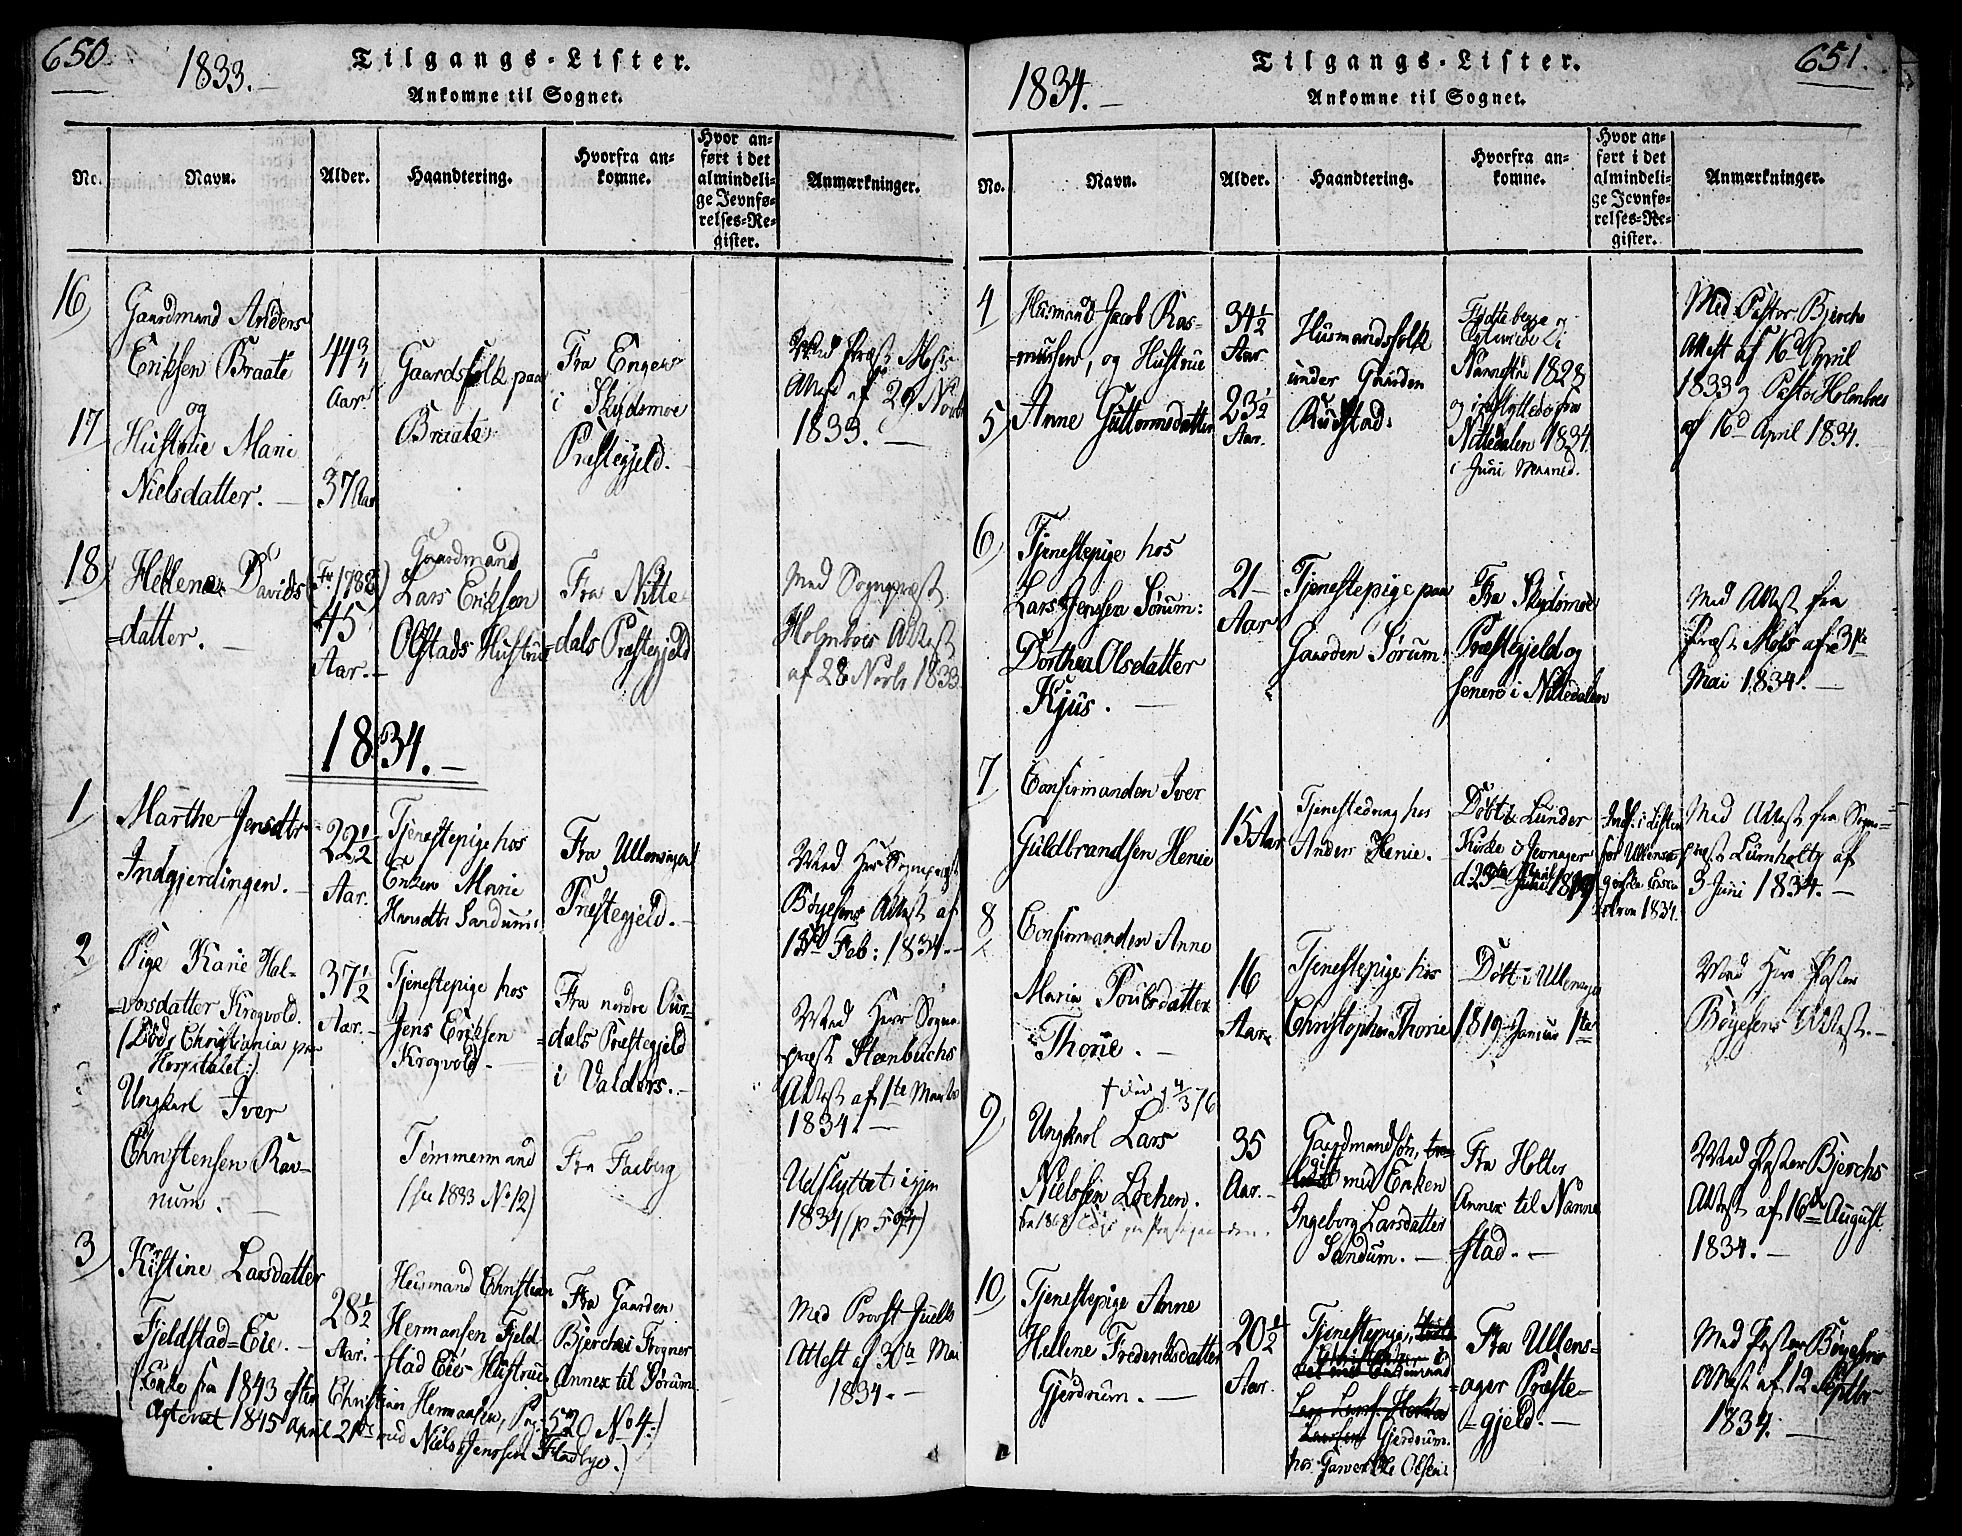 650.
1833.-
Tilgangs-Lister.
Ankomne til Sognet.
No.
Navn.
Alder.
Haandtering.
Hvorfra an-
komne.
Hvor an-
ført i det
almindeli-
ge Jevnfø-
relses-Re-
gister.
Anmærkninger.
16
Gaardmand Anders
Eriksen Braate
og
17
Hustrue Mari
Nielsdatter.
44 3/4
Aar.
37 Aar
Gaardsfolk paa
Braate
Fra Enger
i Skydsmoe
Præstegjeld.
Med Præst Mos's
Attest af 29 Novb
1833.
18
Hellene Davids
=datter.
45
Aar.
Gaardmand
Lars Eriksen
Olstads Hustrue
Fra Nitte
dals Præstegjeld
Med Sognepræst
Holmboes Attest
af 28 Novbr 1833.
1834.-
1
Marthe Jensdtr
Indgjerdingen.
22 1/2
Aar.
Tjenestepige hos
Enken Marie
Hansdtr Sandum
Fra Ullensager
Præstegjeld.
Med Hr Sognepræst
Bøyesens Attest af
13de Feb: 1834.
2
Pige Karie Hal-
=vorsdatter Krogvold.
(Død i Christiania paa
Hospitalet:)
37 1/2
Aar.
Tjenestepige hos
Jens Eriksen
Krogvold.
Fra nordre Our-
dals Præstegjeld
i Valders.
Med Herr Sogne-
præst Steenbuchs
Attest af 1te Marts
1834.
Ungkarl Iver
Christensen Rav-
num.
Tømmermand
(see 1833 No 12)
Fra Faaberg
Udflyttet igjen
1834
3
Kistine Larsdatter
Fjeldstad=Eie.
28 1/2
Aar.
Huusmand Christian
Hermansen Fjeld
stad Eies Hustrue
Fra Gaarden
Bjerche i Frogner
Annex til Sørum
Med Provst Juells
Attest af 30te Mai
1834.
(Enke fra 1843 efter Christian Hermansen, Pag: 520 No 4:)
Agteret 1845 April 21de med Niels Jenssen Fladbye.)
651.
1834.-
Tilgangs-Lister.
Ankomne til Sognet.
No.
Navn.
Alder.
Haandtering.
Hvorfra an-
komne.
Hvor an-
ført i det
almindeli-
ge Jevnfø-
relses-Re-
gister.
Anmærkninger.
4
Husmand Jacob Ras-
=mussen, og Hustrue
5
Anne Guttormsdatter
34 1/2
Aar
23 1/2
Aar.
Husmandsfolk
under Gaarden
Rudstad.
Nannestad 1828
og indflyttede fra
Nittedalen 1834
i Juni Maaned.
Med Pastor Bjerchs
Attest af 16d April
1833 og Pastor Holmboes
af 16d April 1834.
6
Tjenestepige hos
Lars Jenssen Sørum:
Dorthea Olsdatter
Kjus.
21
Aar
Tjenestepige paa
Gaarden Sørum.
Fra Skydsmoe
Præstegjeld og
senere i Nittedalen
Med Attest fra
Præst Mos's af 3te
Mai 1834.
7
Confirmanden Iver
Guldbrandsen Henie
15 Aar
Tjenestedreng hos
Anders Henie.
Døbt i Lunder
Kirke i Jevnager
d 23de 1819
Indf. i Listen
for Ullensa-
1834.
Med Attest fra Sogne-
præst Lumholtz af
3 Juni 1834.
8
Confirmanden Anne
Maria Poulsdatter
Thorie.
16
Aar
Tjenestepige hos
Christopher Thorie
Døbt i Ullensager
1819 Januar 1te
Med Herr Pastor
Bøyesens Attest.
9
† død 4/3 76
Ungkarl Lars
Nielssen Løchen.
35
Aar.
Gaardmandsøn,
med Enken
Ingeborg Larsdatter
Sandum.
Fra Holter
Annex til Nanne
stad.
Med Pastor Bjerchs
Attest af 16de August
1834.
10
Tjenestepige Anne
Hellene Fredericksdatter
Gjerdrum.
20 1/2
Aar.
Tjenestepige,
Gjerdrum.
hos Garver Ole Olsen
Fra Ullens-
=ager Præste-
=gjeld.
Med Pastor Bøyesens
Attest af 12 Septbr
1834.